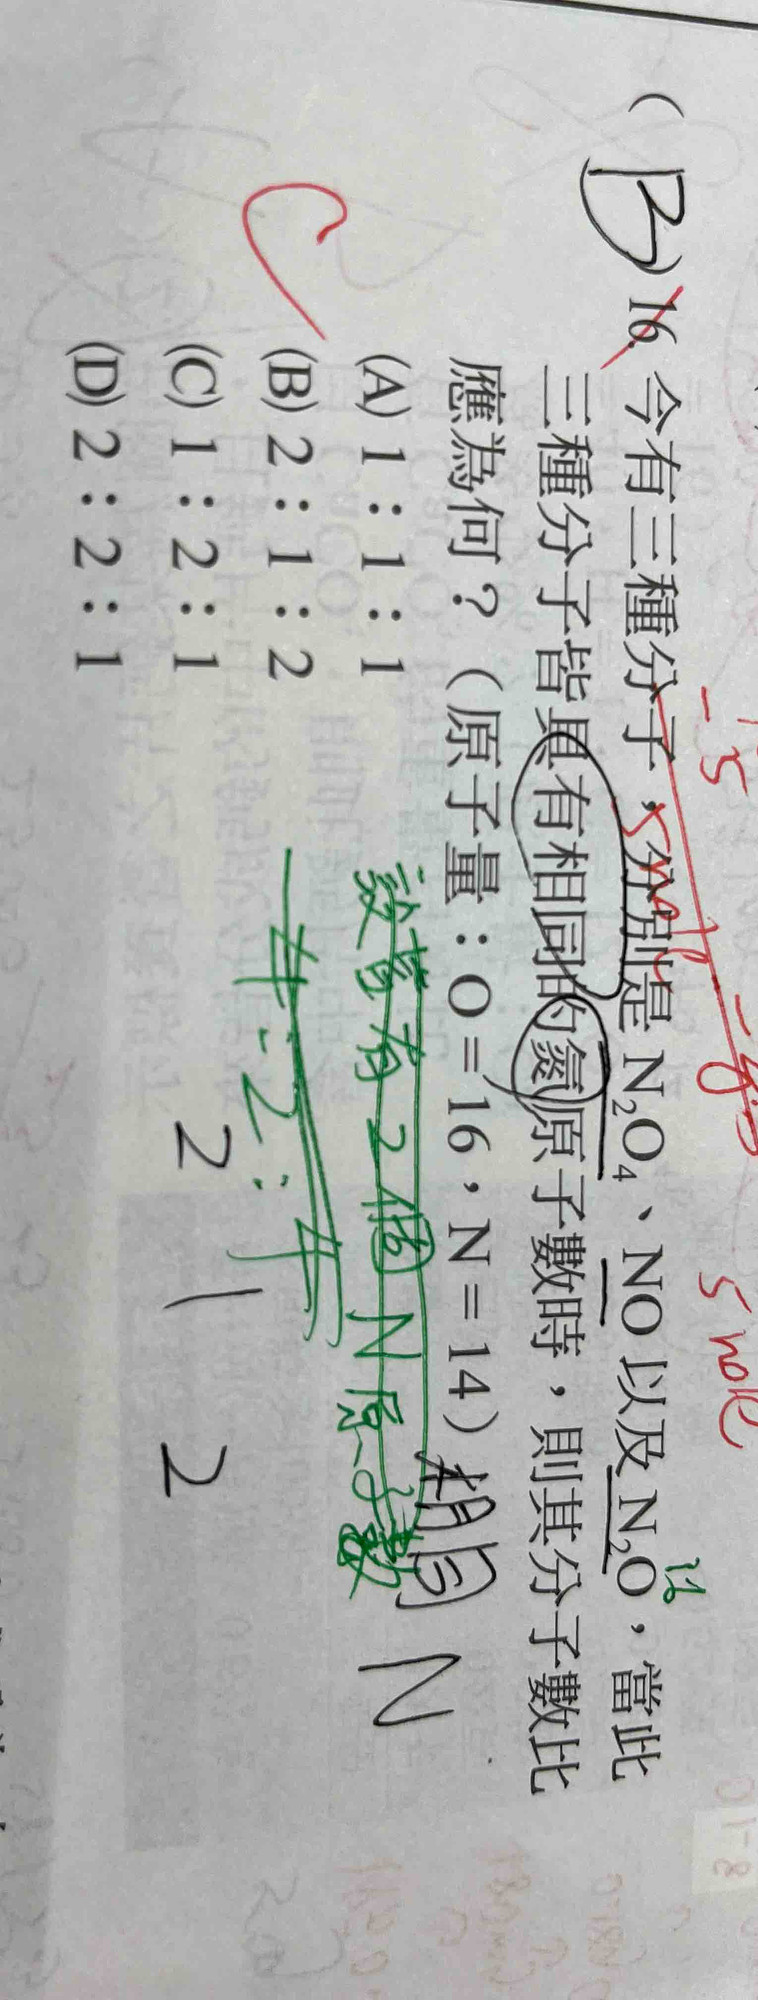 (B) 16. 今有三種分子，分別是 N₂O₄、NO 以及 N₂O，當此
三種分子皆具有相同的氮原子數時，則其分子數比
應為何？（原子量：O＝16，N＝14）相同 N
(A) 1：1：1
(B) 2：1：2
(C) 1：2：1
(D) 2：2：1
C
設皆有2個N原子數
1:2:1
2 1 2
-5
5 mole